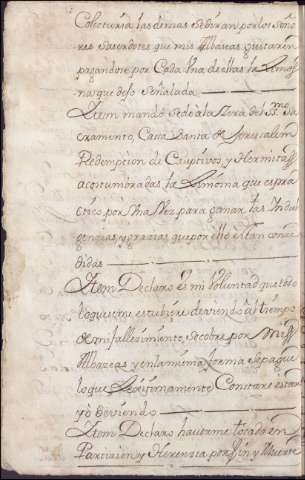 Colecturia las demas se diran por los Seño
res Sacerdotes que mis Albaceas gustaren
pagandose por Cada Una de ellas la Limos
na que dejo Señalada
Item mando se dè à la Cera del SS.mo Sa
cramento, Cassa Santa de Jerusalem
Redempcion de Captivos, y Hermitas
acostumbradas la Limosna que es prac
tica por Una Vez para ganar las Indul
gencias, y gracias que por ello estan conce
didas
Item Declaro es mi Voluntad que todo
lo que se me estubiere deviendo al tiempo
de mi fallesimiento, se cobre por mis
Albaceas y en la misma forma se pague
lo que Lexitimamente Constare estar
yo deviendo
Item Declaro haverme tocado en
Particion, y Herencia por fin, y Muerte